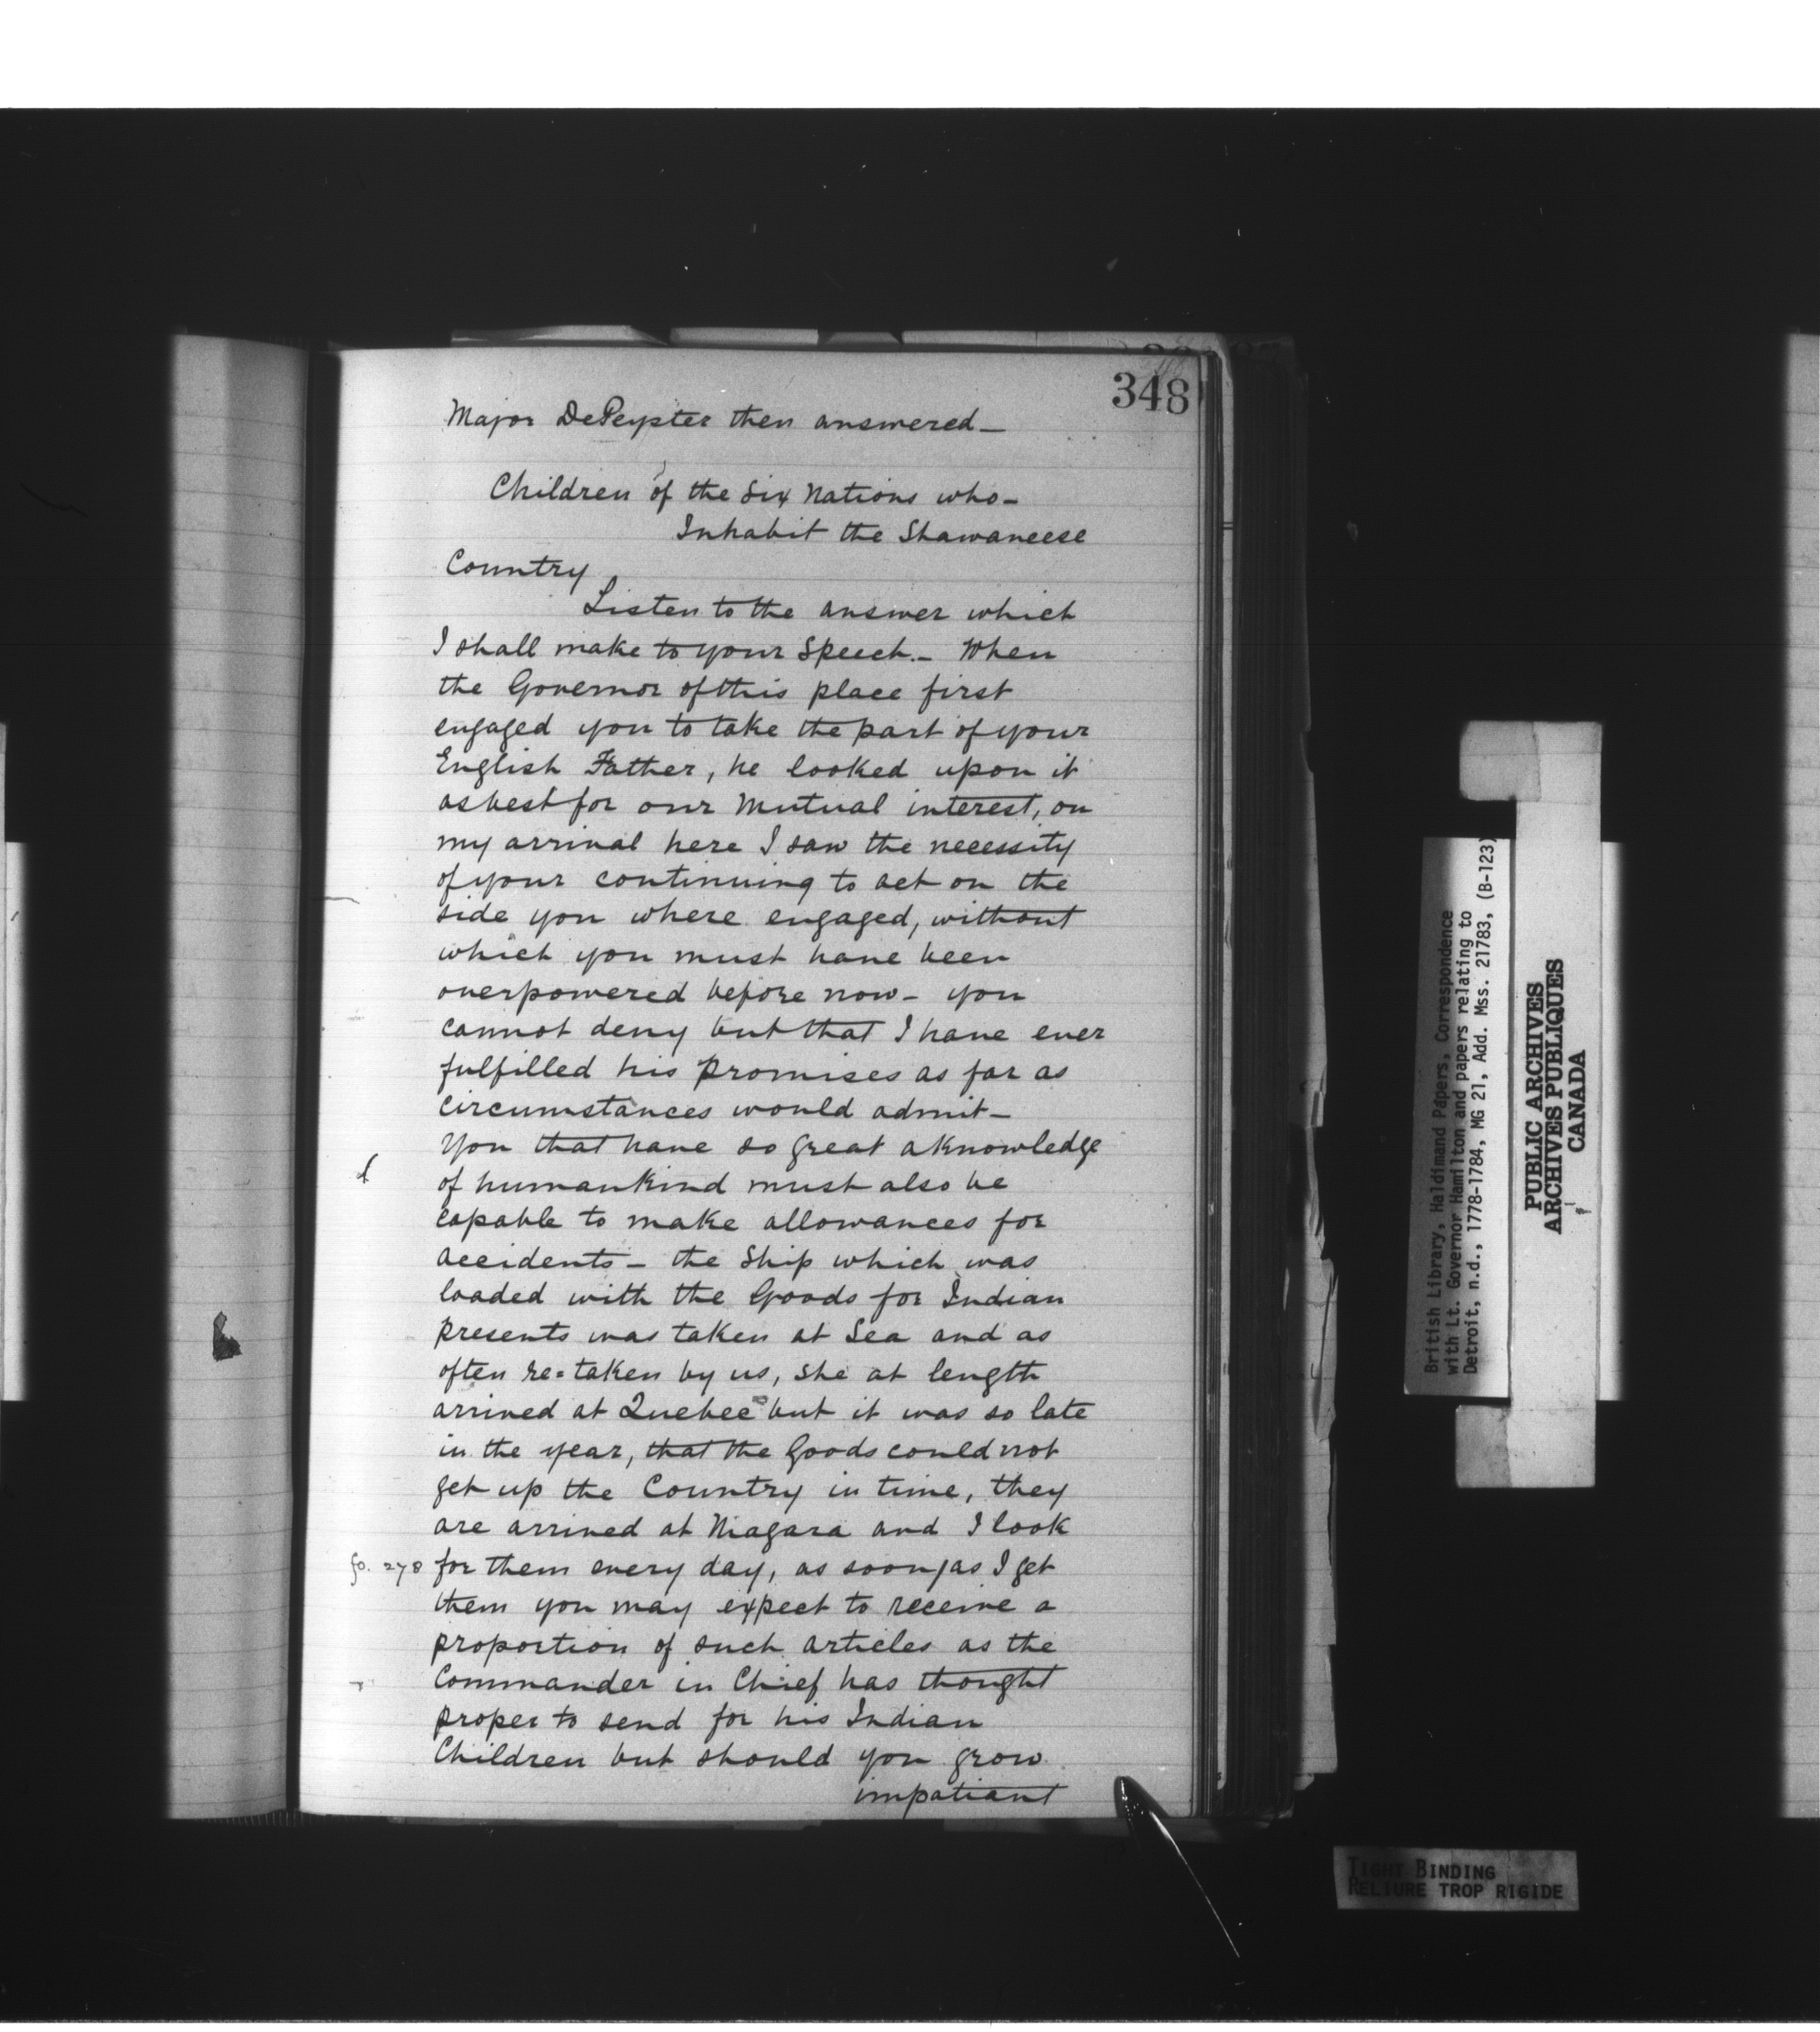 348
Major DePeyster then answered—
Children of the Six Nations who—
Inhabit the Shawaneese
Country
Listen to the answer which
I shall make to your Speech.— When
the Governor of this place first
engaged you to take the part of your
English Father, he looked upon it
as best for our Mutual interest, on
my arrival here I saw the necessity
of your continuing to act on the
side you where engaged, without
which you must have been
overpowered before now— you
cannot deny but that I have ever
fulfilled his promises as far as
circumstances would admit—
You that have so great a knowledge
of humankind must also be
capable to make allowances for
accidents— the Ship which was
loaded with the Goods for Indian
presents was taken at Sea and as
often re=taken by us, she at length
arrived at Quebec but it was so late
in the year, that the Goods could not
get up the Country in time, they
are arrived at Niagara and I look
fo. 278 for them every day, as soon/as I get
them you may expect to receive a
proportion of such articles as the
Commander in Chief has thought
proper to send for his Indian
Children but should you grow
impatiant
British Library, Haldimand Papers, Correspondence
with Lt. Governor Hamilton and papers relating to
Detroit, n.d., 1778-1784, MG 21, Add. Mss. 21783, (B-123)
PUBLIC ARCHIVES
ARCHIVES PUBLIQUES
CANADA
TIGHT BINDING
RELIURE TROP RIGIDE